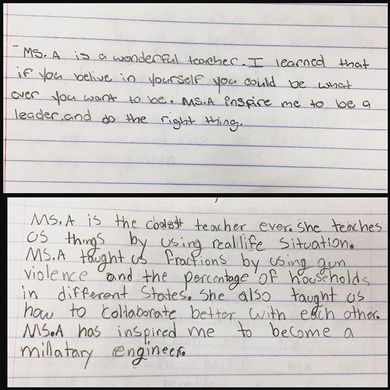 - MS. A is a wonderful teacher. I learned that
if you belive in yourself you could be what
over you want to be. MS.A Inspire me to be a
leader,and do the right thing.
MS.A is the coolest teacher ever. She teaches
us things by using reallife situation.
MS.A taught us fractions by using gun
violence and the percentage of households
in different States. She also taught us
how to collaborate better with each other.
MS.A has inspired me to become a
millatary engineer.